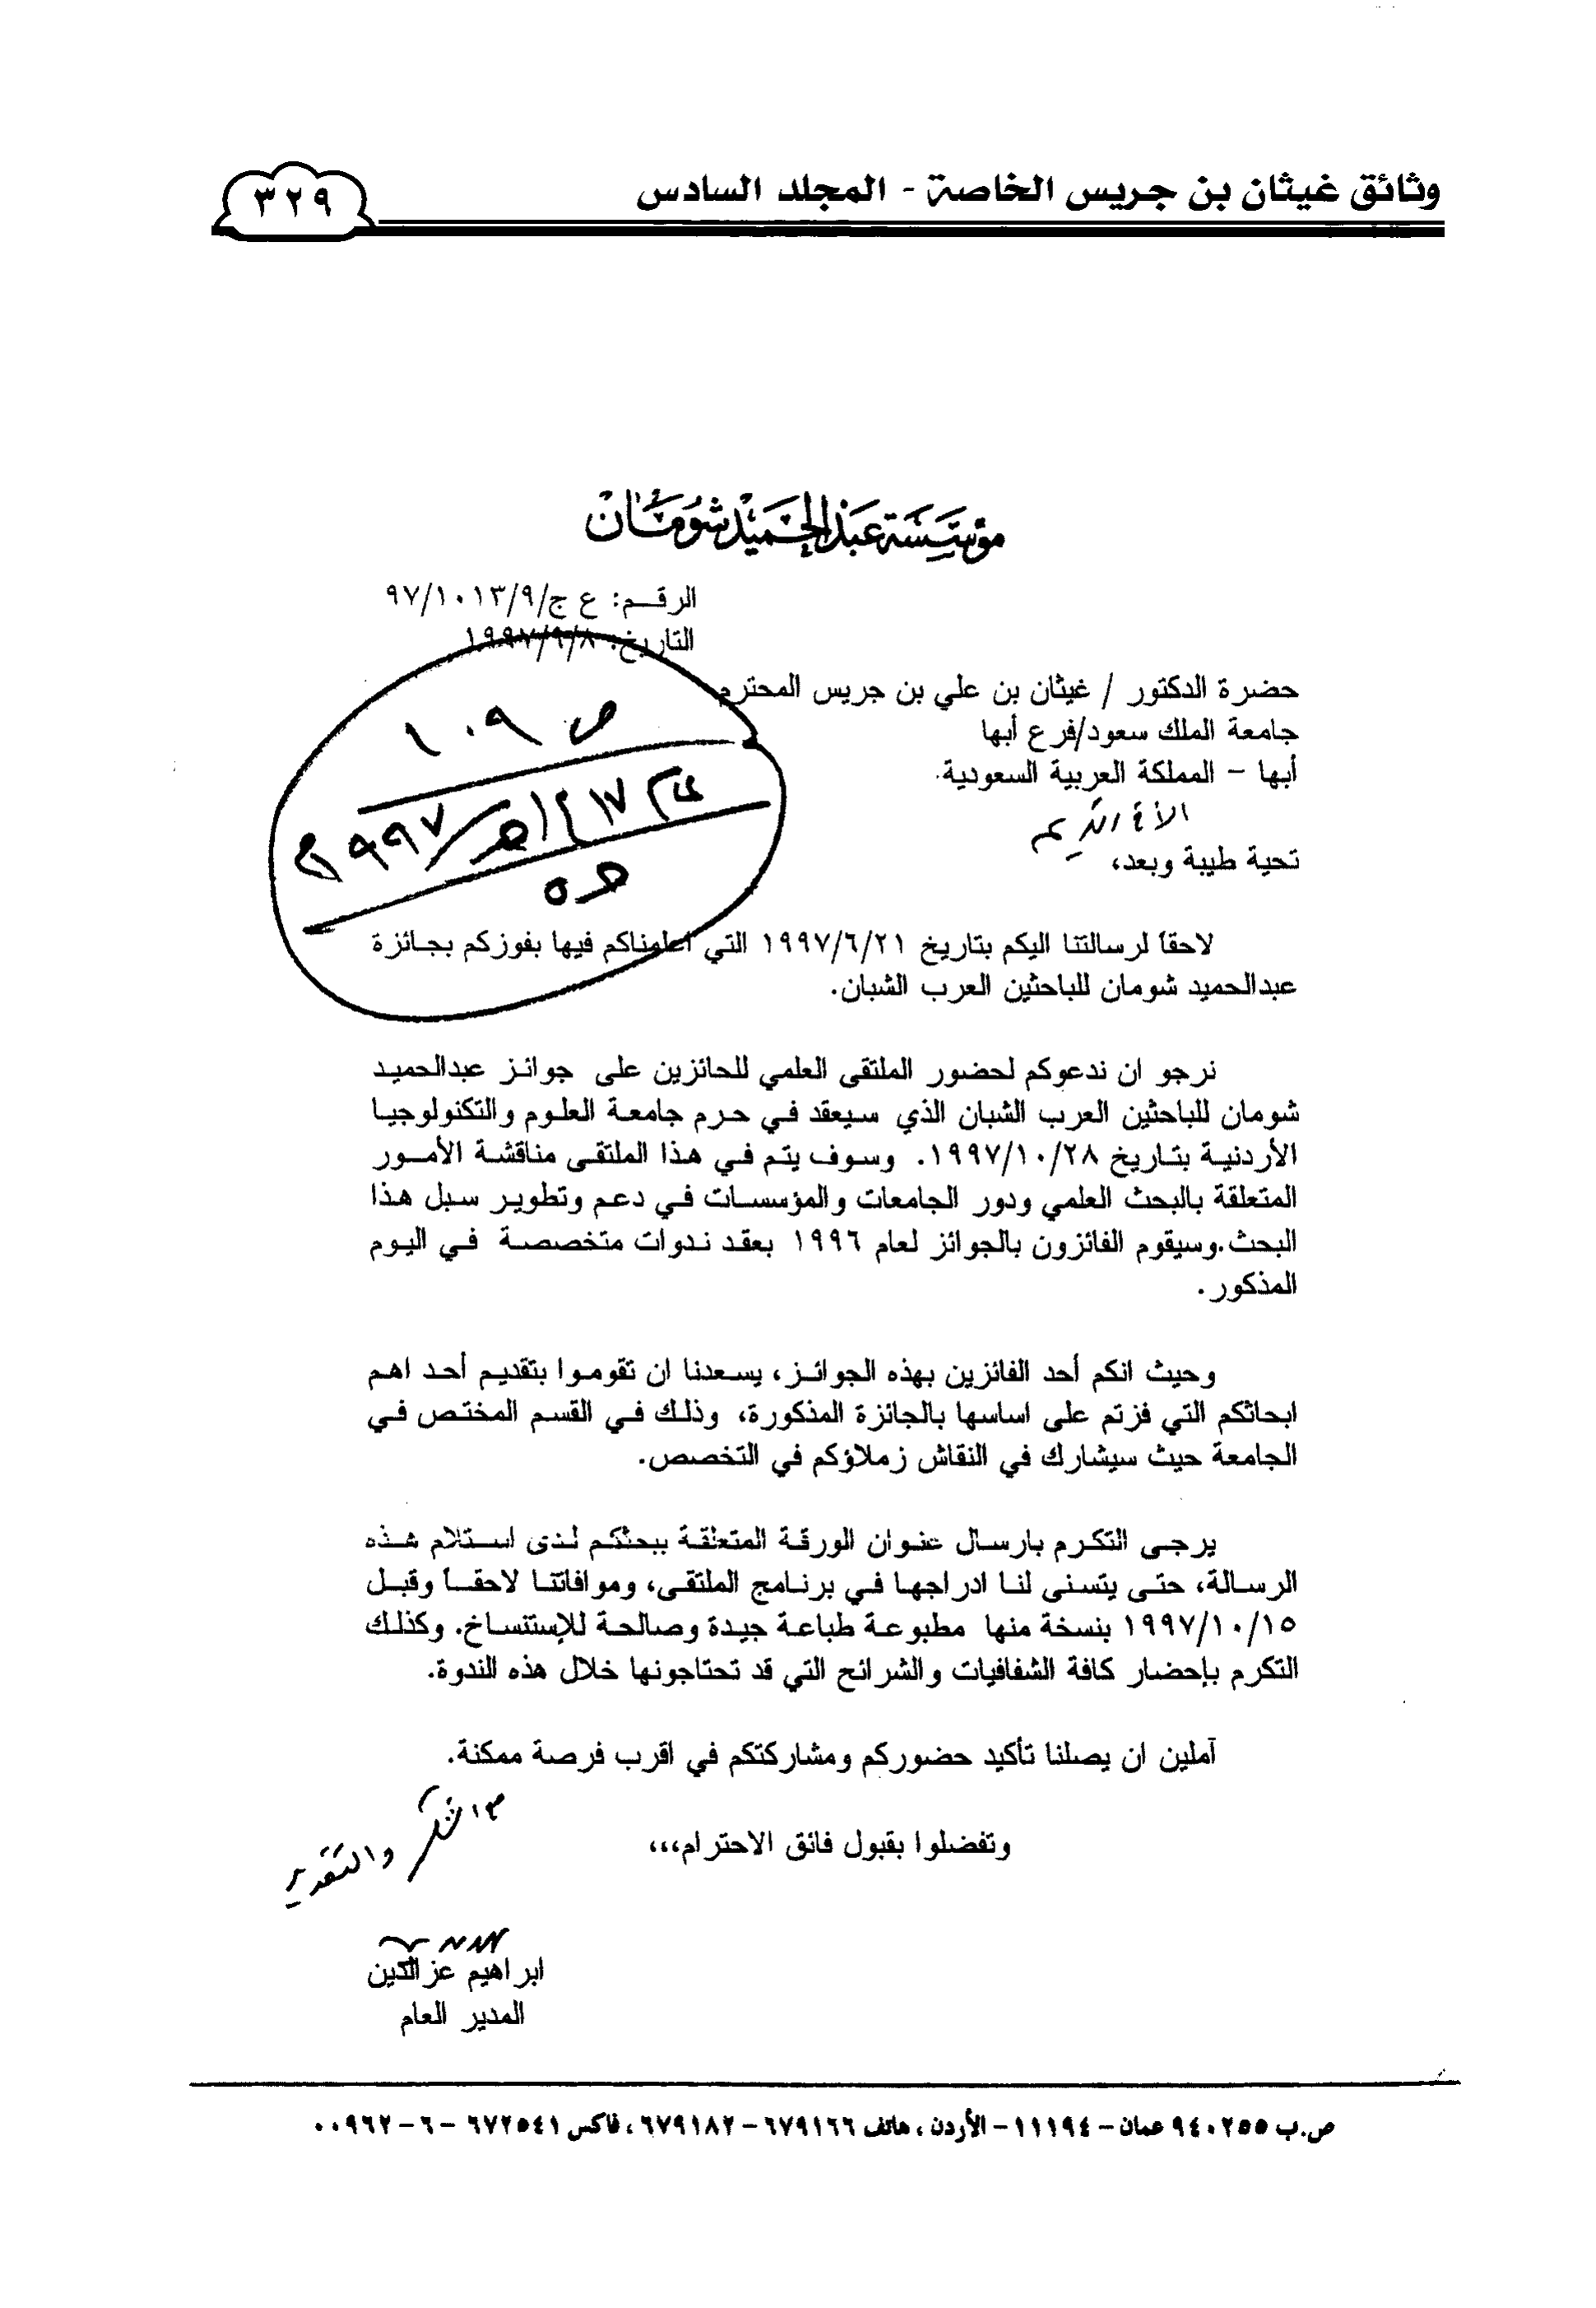 وثائق غيثان بن جريس الخاصة - المجلد السادس
٣٢٩
مؤسسة عبد الحميد شومان
الرقم: ع ج/٩/١٠١٣/٩٧
التاريخ: ١٩٩٧/٩/٨
حضرة الدكتور / غيثان بن علي بن جريس المحترم
جامعة الملك سعود/فرع أبها
أبها - المملكة العربية السعودية.
الأخ الكريم
تحية طيبة وبعد،
ص ١٠٩
١٩٩٧م
لاحقاً لرسالتنا اليكم بتاريخ ١٩٩٧/٦/٢١ التي اعلمناكم فيها بفوزكم بجائزة
عبدالحميد شومان للباحثين العرب الشبان.
نرجو ان ندعوكم لحضور الملتقى العلمي للحائزين على جوائز عبدالحميد
شومان للباحثين العرب الشبان الذي سيعقد في حرم جامعة العلوم والتكنولوجيا
الأردنية بتاريخ ١٩٩٧/١٠/٢٨. وسوف يتم في هذا الملتقى مناقشة الأمور
المتعلقة بالبحث العلمي ودور الجامعات والمؤسسات في دعم وتطوير سبل هذا
البحث.وسيقوم الفائزون بالجوائز لعام ١٩٩٦ بعقد ندوات متخصصة في اليوم
المذكور.
وحيث انكم أحد الفائزين بهذه الجوائز، يسعدنا ان تقوموا بتقديم أحد اهم
ابحاثكم التي فزتم على اساسها بالجائزة المذكورة، وذلك في القسم المختص في
الجامعة حيث سيشارك في النقاش زملاؤكم في التخصص.
يرجى التكرم بارسال عنوان الورقة المتعلقة ببحثكم لدى استلام هذه
الرسالة، حتى يتسنى لنا ادراجها في برنامج الملتقى، وموافاتنا لاحقاً وقبل
١٩٩٧/١٠/١٥ بنسخة منها مطبوعة طباعة جيدة وصالحة للإستنساخ. وكذلك
التكرم بإحضار كافة الشفافيات والشرائح التي قد تحتاجونها خلال هذه الندوة.
آملين ان يصلنا تأكيد حضوركم ومشاركتكم في اقرب فرصة ممكنة.
وتفضلوا بقبول فائق الاحترام،،،
مع الشكر والتقدير
ابراهيم عزالدين
المدير العام
ص.ب ٩٤٠٢٥٥ عمان - ١١١٩٤ - الأردن ، هاتف ٦٧٩١٦٦ - ٦٧٩١٨٢ ، فاكس ٦٧٢٥٤١ - ٦ - ٠٠٩٦٢